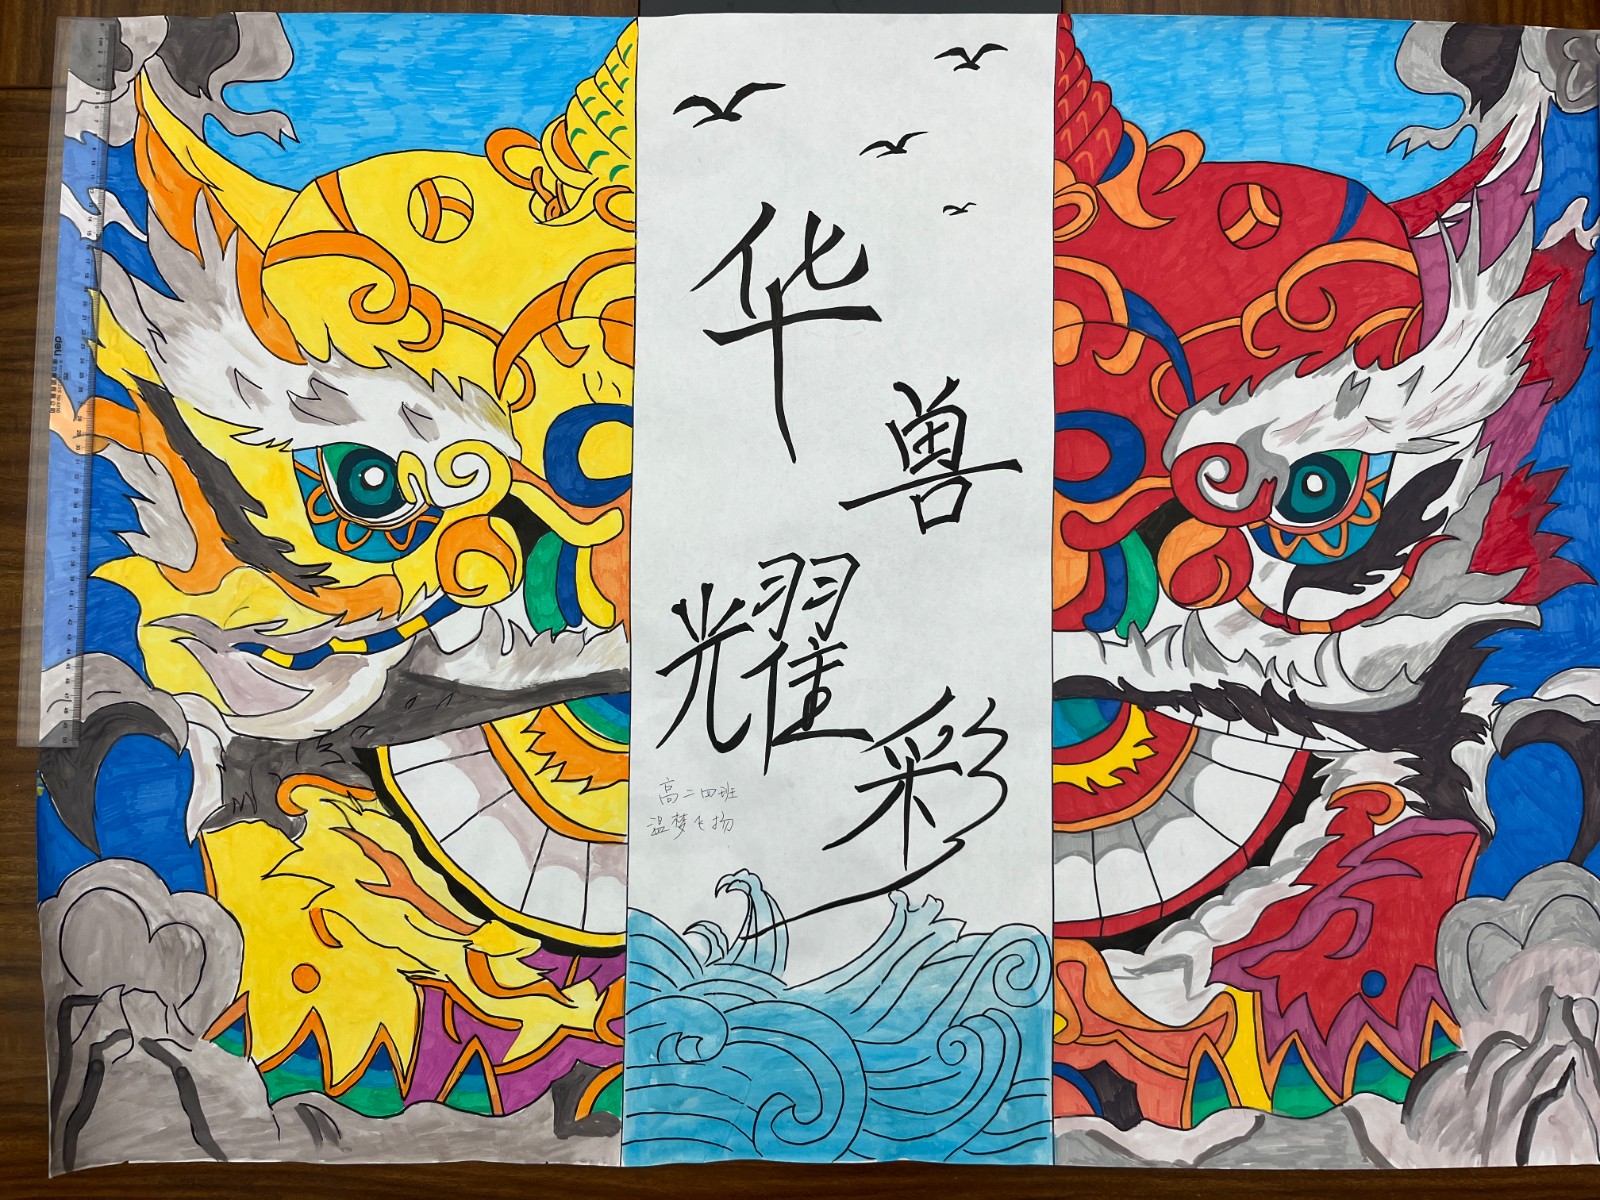 华
兽
耀
彩
高二四班
温梦飞扬
deli